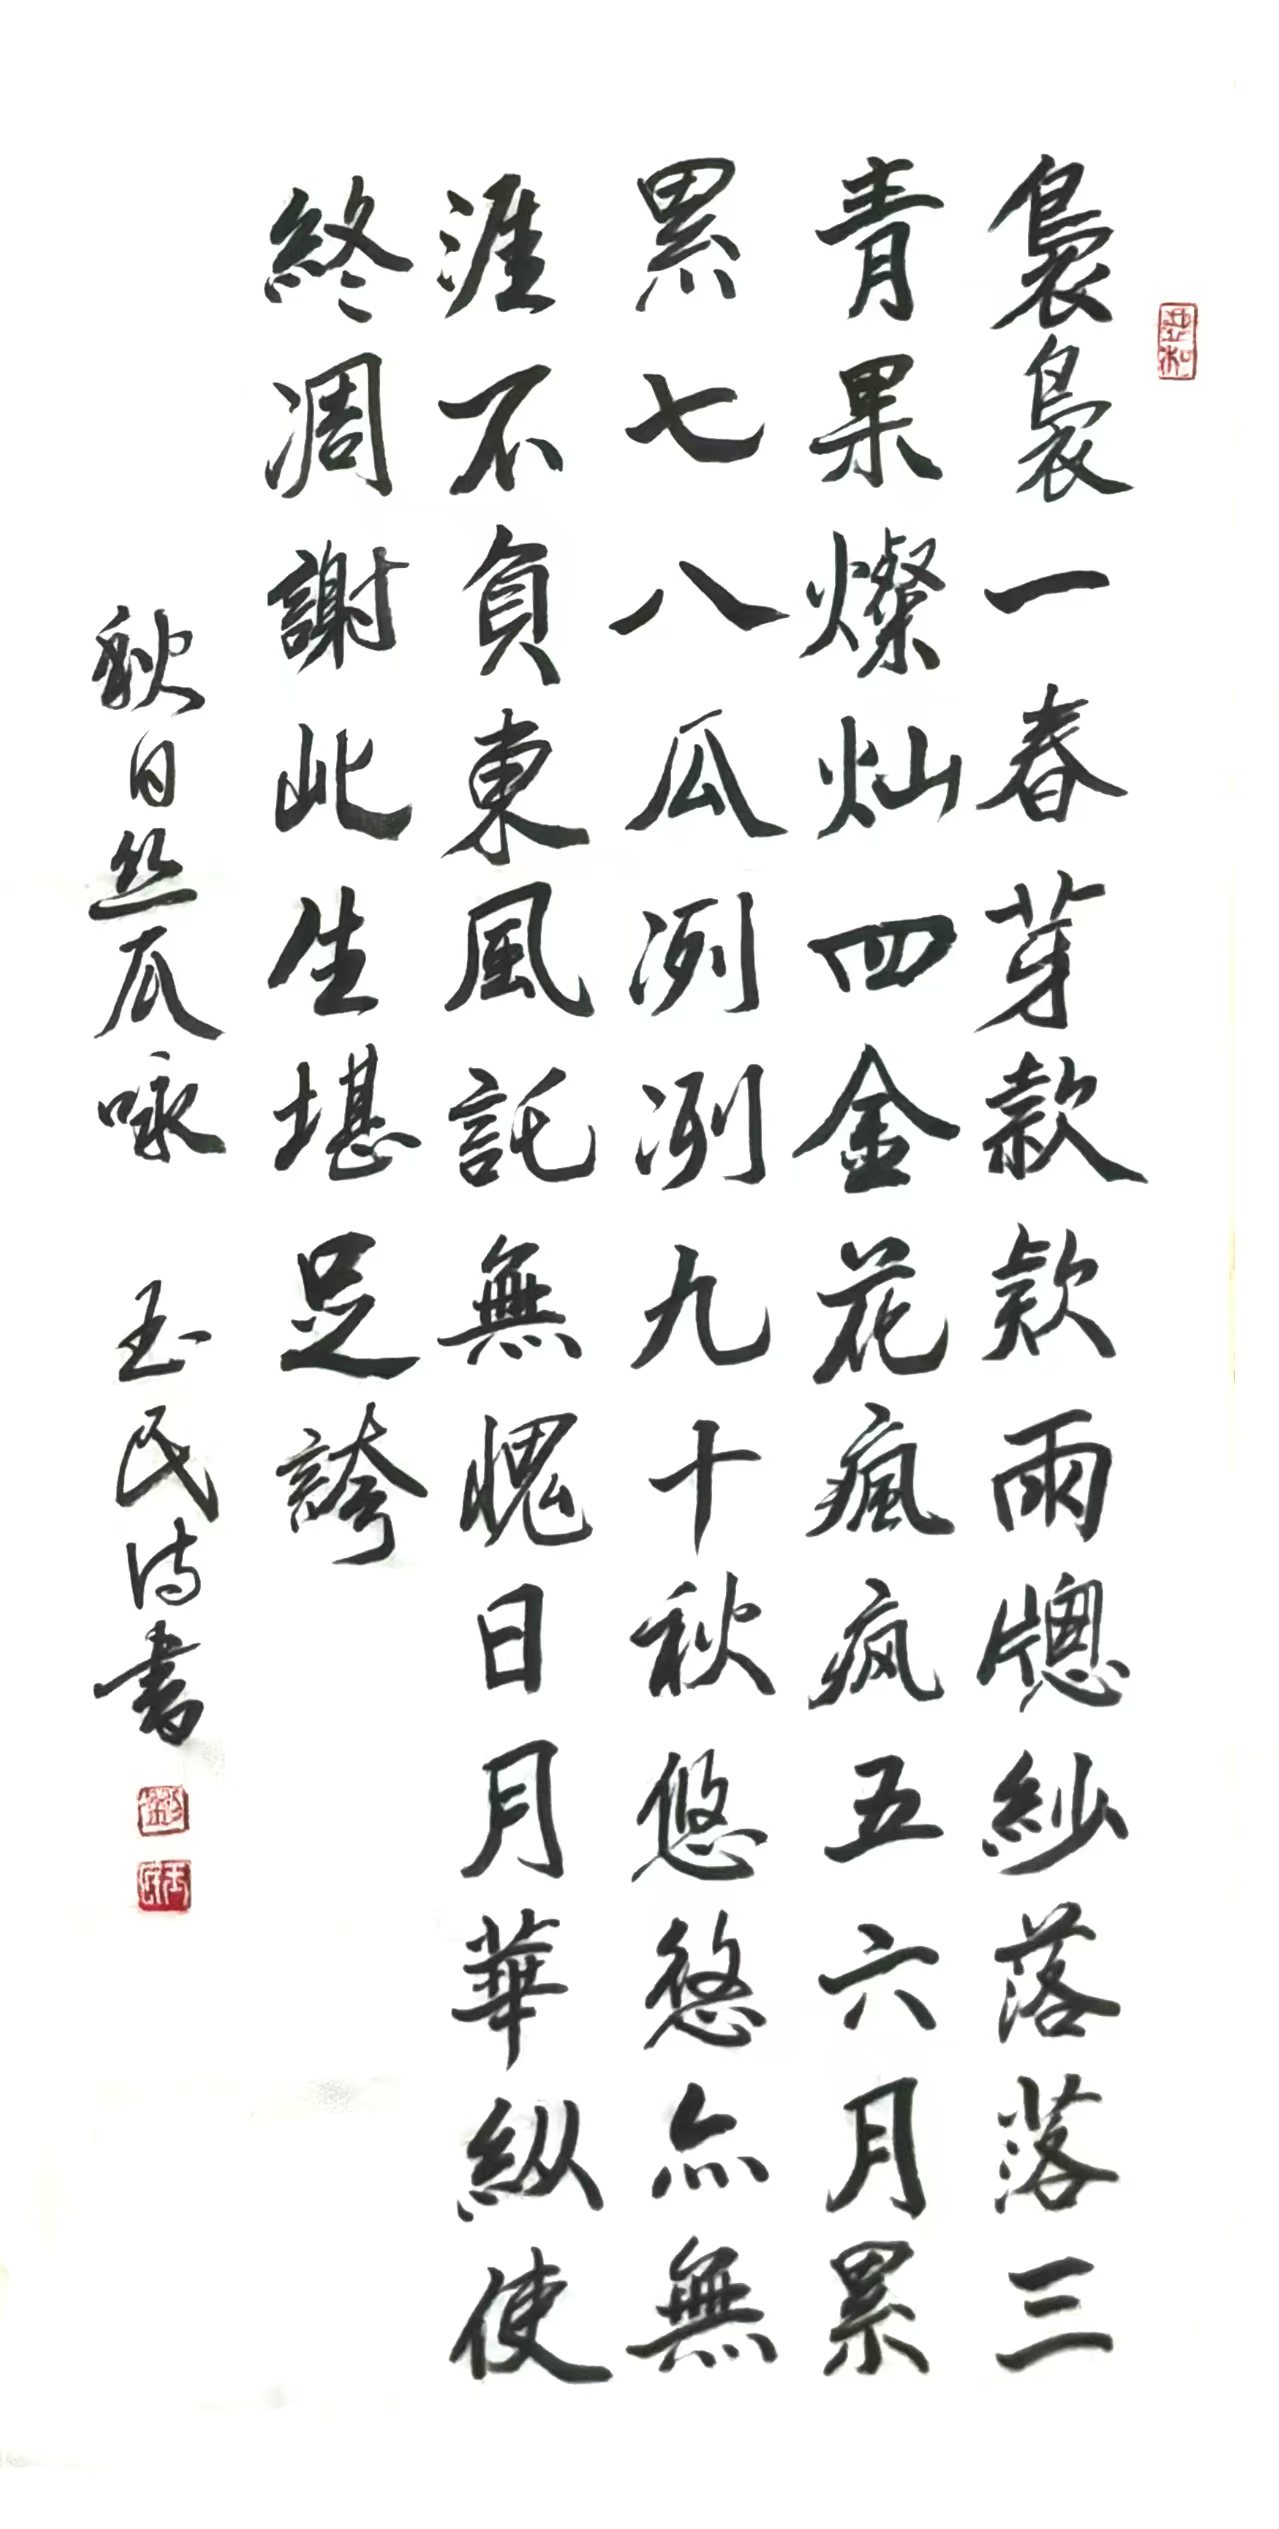 裊裊一春芽款款雨牕紗落落三
青果燦灿四金花瘋疯五六月累
累七八瓜冽冽九十秋悠悠亦無
涯不負東風託無愧日月華縱使
終凋謝此生堪足誇
秋日丝瓜咏 玉民诗書